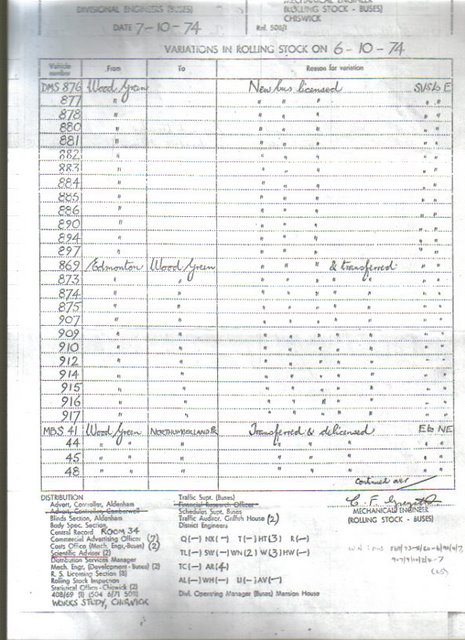 DIVISIONAL ENGINEERS (BUSES)
MECHANICAL ENGINEER
(ROLLING STOCK - BUSES)
CHISWICK
DATE 7-10-74 Ref. 508/1
VARIATIONS IN ROLLING STOCK ON 6-10-74
Vehicle number From To Reason for variation
DMS 876 Wood Green New bus licensed E
877 " " " " " "
878 " " " " " "
880 " " " " " "
881 " " " " " "
882 " " " " " "
883 " " " " " "
884 " " " " " "
885 " " " " " "
886 " " " " " "
890 " " " " " "
894 " " " " " "
897 " " " " " "
869 Edmonton Wood Green " " " & transferred " "
873 " " " " " " " "
874 " " " " " " " "
875 " " " " " " " "
907 " " " " " " " "
909 " " " " " " " "
910 " " " " " " " "
912 " " " " " " " "
914 " " " " " " " "
915 " " " " " " " "
916 " " " " " " " "
917 " " " " " " " "
MBS 41 Wood Green NORTHUMBERLAND PK Transferred & delicensed Eb NE
44 " " " " " " " "
45 " " " " " " " "
48 " " " " " " " "
continued over
DISTRIBUTION
Advert. Controller, Aldenham
Advert. Controller, Camberwell
Blinds Section, Aldenham
Body Spec. Section
Central Record ROOM 34
Commercial Advertising Officer (7)
Costs Office (Mech. Engr-Buses) (2)
Scientific Adviser (2)
Distribution Services Manager
Mech. Engr, (Development - Buses) (2)
R. S. Licensing Section (3)
Rolling Stock Inspection
Statistical Office - Chiswick (2)
408/69 B (504 6/71 50M)
WORKS STUDY, CHISWICK
Traffic Supt. (Buses)
Financial Research Officer
Schedules Supt. Buses
Traffic Auditor, Griffith House (2)
District Engineers
Q(—) NX(—) T(—) HT(3) R(—)
TL(—) SW(—) WN(2) W(3) HW(—)
TC(—) AR(4)
AL(—) WH(—) U(—) AV(—)
Divl. Operating Manager (Buses) Mansion House
MECHANICAL ENGINEER
(ROLLING STOCK - BUSES)